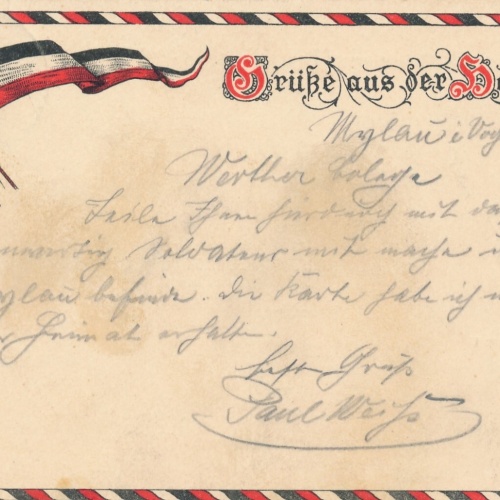 Grüße aus der H
Mylau i Vog
Werther Colege
Teile Ihnen hierdurch mit da
Soldaten mit mache
ylau befinde. die Karte habe ich
r Heimat erhalten.
best Gruß
Paul Weiß